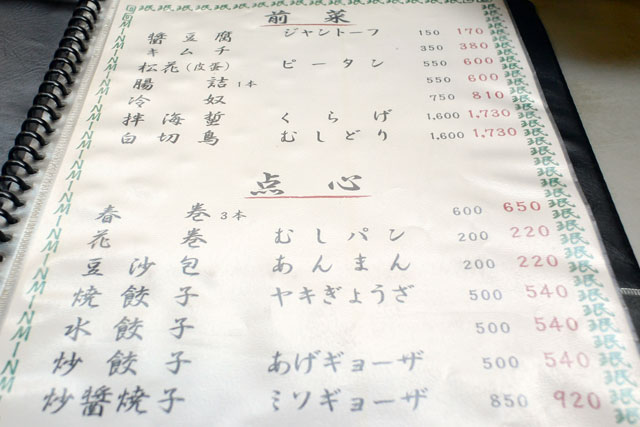 前菜
醬豆腐 ジャントーフ 150 170
キムチ 350 380
松花(皮蛋) ピータン 550 600
腸詰1本 550 600
冷奴 750 810
拌海蜇 くらげ 1,600 1,730
白切鳥 むしどり 1,600 1,730
点心
春巻3本 600 650
花巻 むしパン 200 220
豆沙包 あんまん 200 220
焼餃子 ヤキぎょうざ 500 540
水餃子 500 540
炒餃子 あげギョーザ 500 540
炒醬焼子 ミソギョーザ 850 920